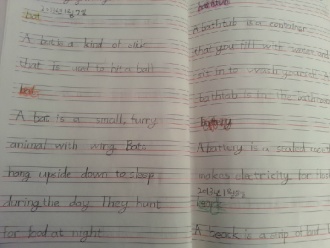 bat
A bat is a kind of club
that is used to hit a ball
bat
A bat is a small, furry
animal with wing. Bats
hang upside down to sleep
during the day. They hunt
for food at night
bathtub
A bathtub is a container
that you fill with water and
sit in to wash yourself
bathtub is
battery
A battery is a sealed
makes electricity for
A beach is a strip of